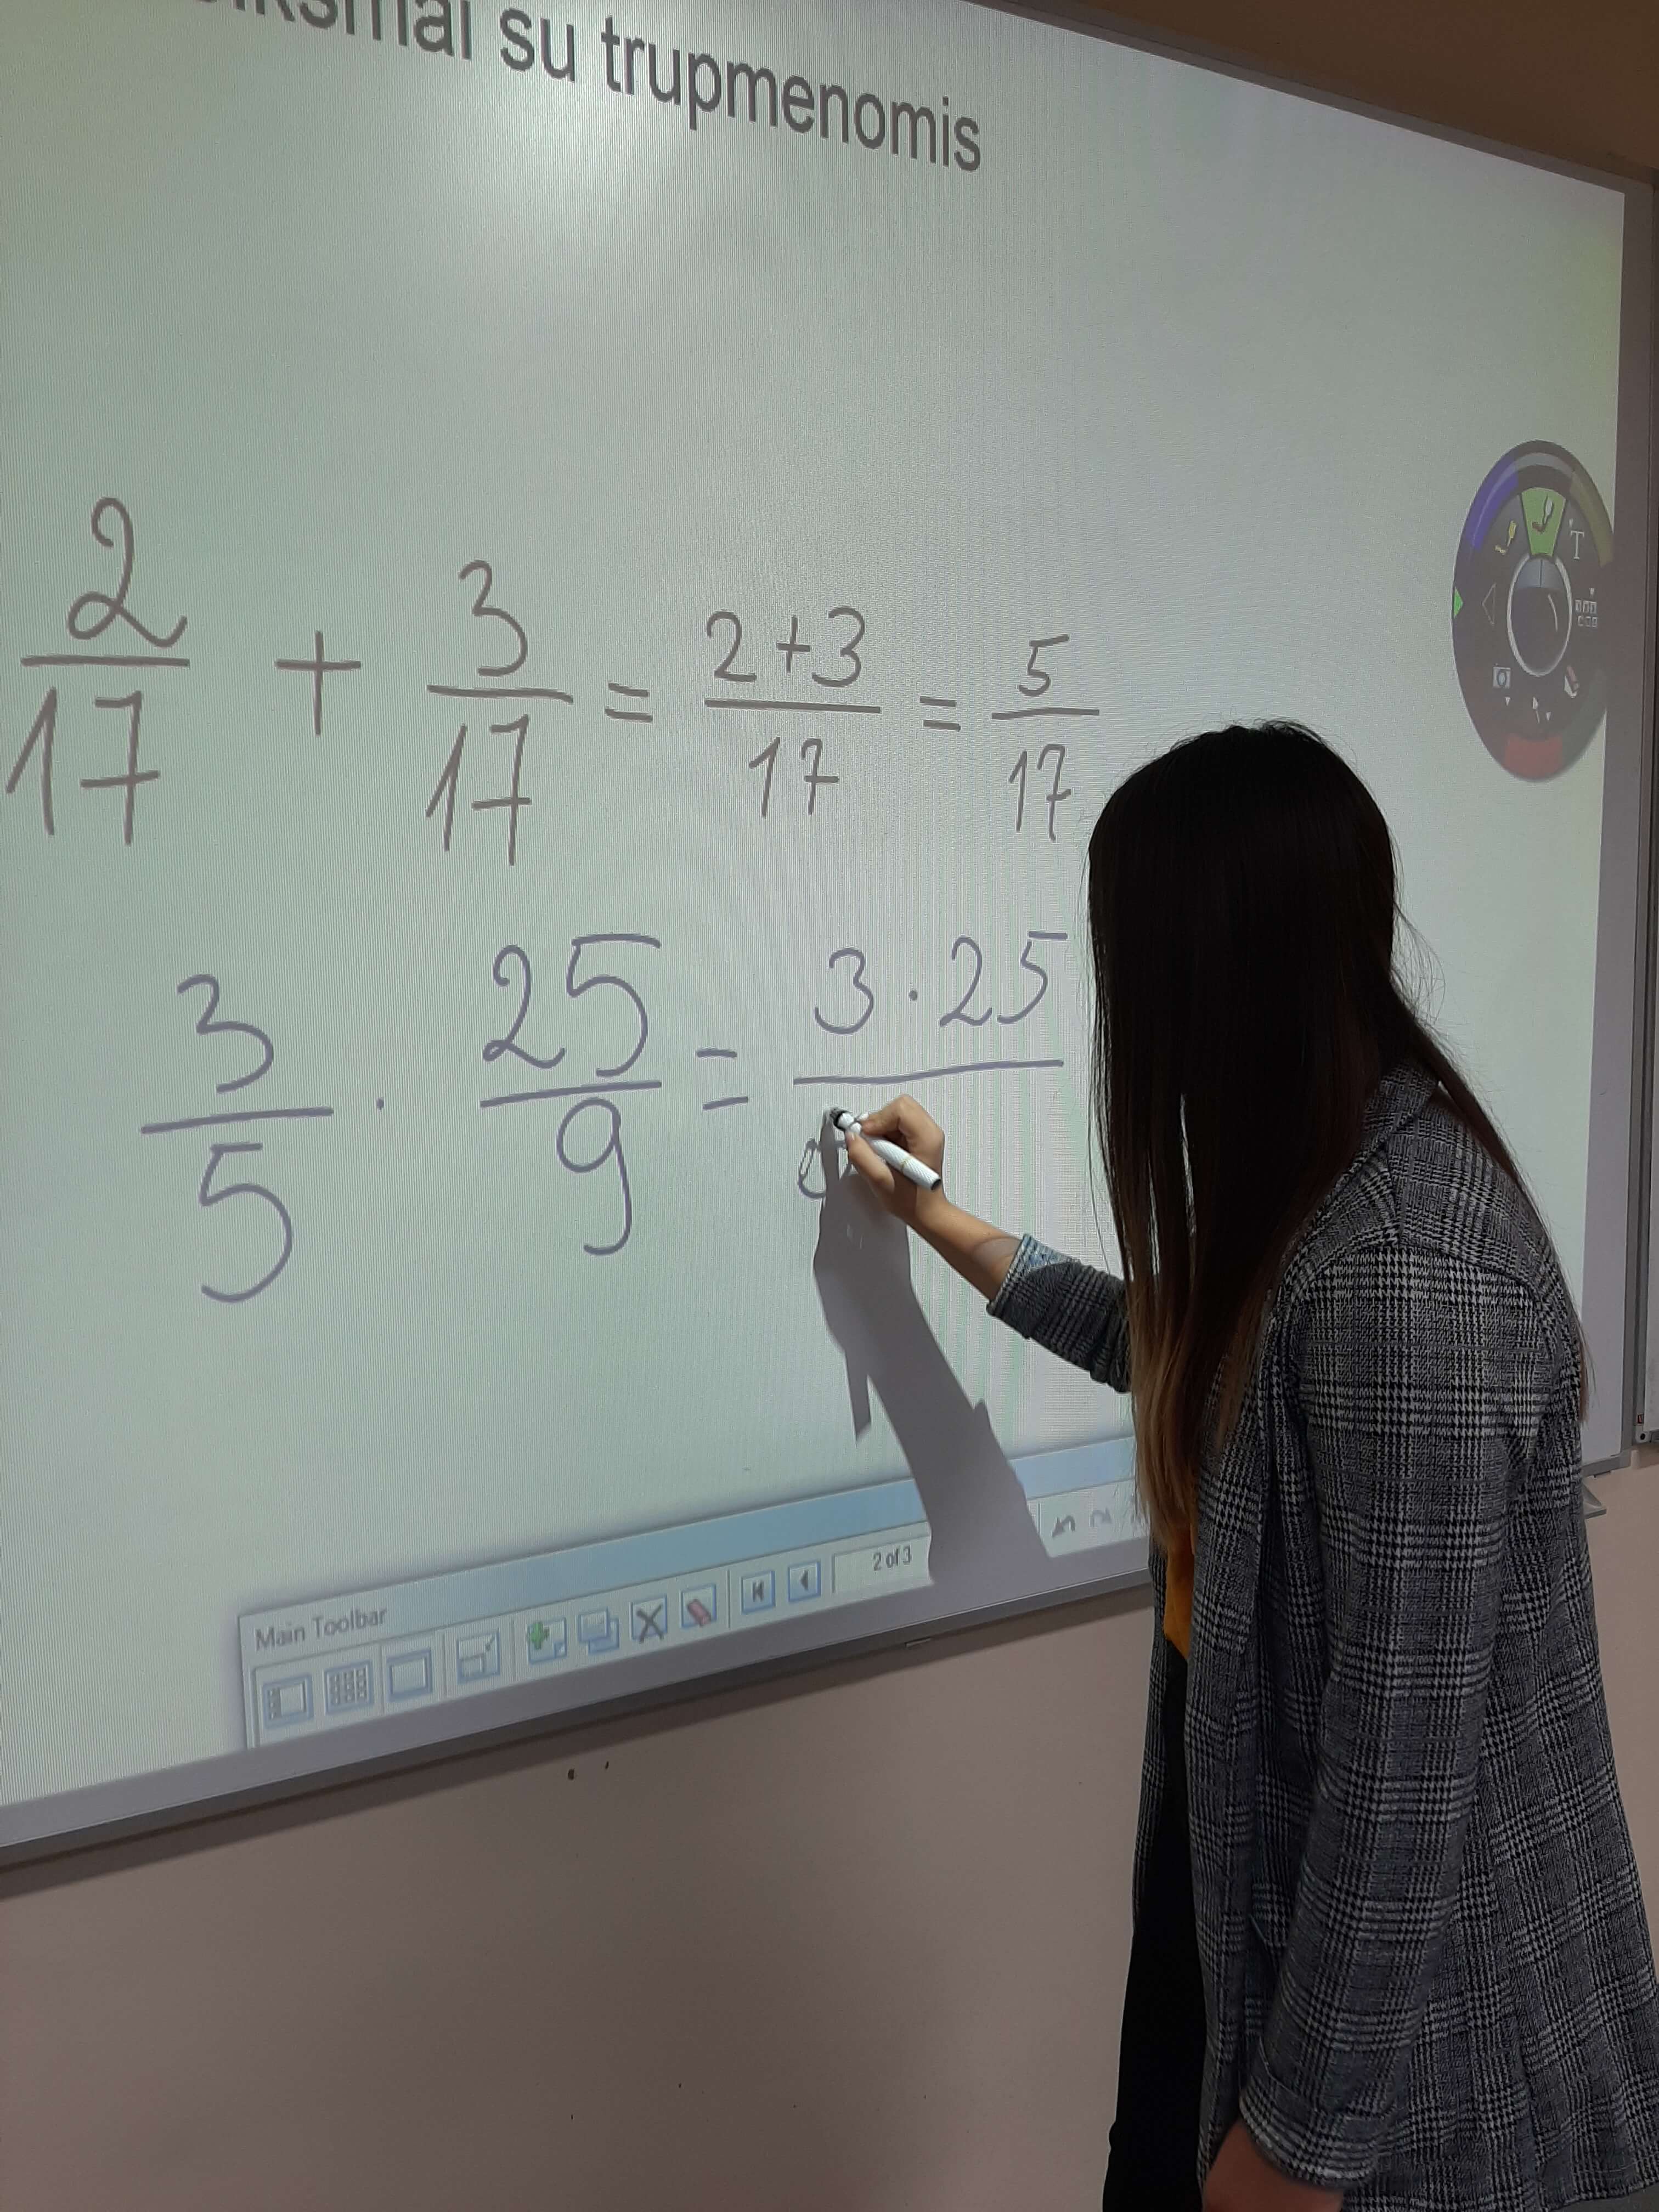 su trupmenomis
2/17 + 3/17 = 2+3/17 = 5/17
3/5 · 25/9 = 3·25/
T
Main Toolbar
2 of 3